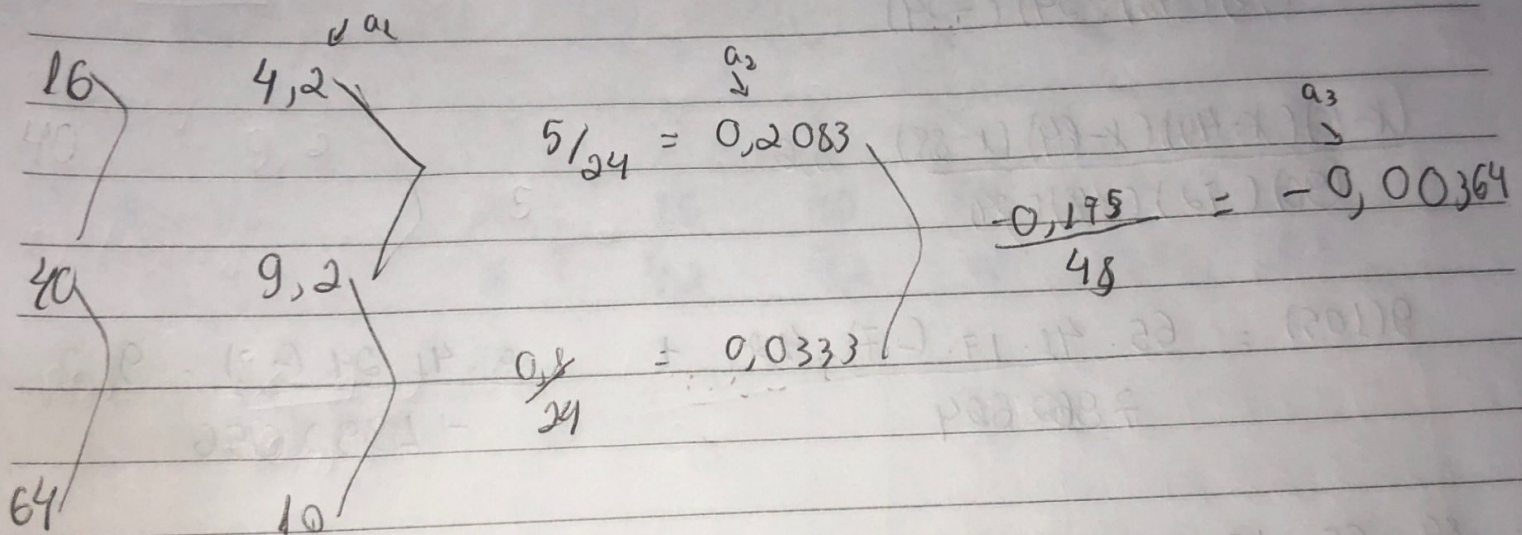 ↙ a1
16 4,2
a2
↓
5/24 = 0,2083
a3
↘
-0,175/48 = -0,00364
40 9,2
0,8/24 = 0,0333
64 10